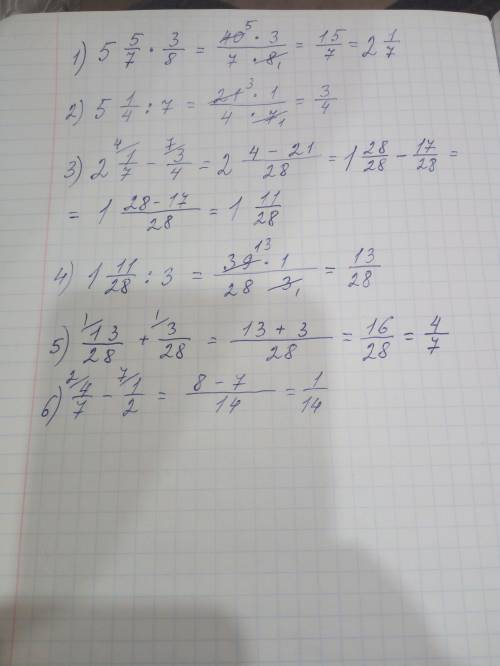 1) 5 5/7 · 3/8 = 40⁵ · 3 / 7 · 8₁ = 15/7 = 2 1/7
2) 5 1/4 : 7 = 21³ · 1 / 4 · 7₁ = 3/4
3) 2 ⁴1/7 - ⁷3/4 = 2 4 - 21 / 28 = 1 28/28 - 17/28 =
= 1 28-17 / 28 = 1 11/28
4) 1 11/28 : 3 = 39¹³ · 1 / 28 3₁ = 13/28
5) ¹13/28 + ¹3/28 = 13 + 3 / 28 = 16/28 = 4/7
6) ²4/7 - ⁷1/2 = 8 - 7 / 14 = 1/14